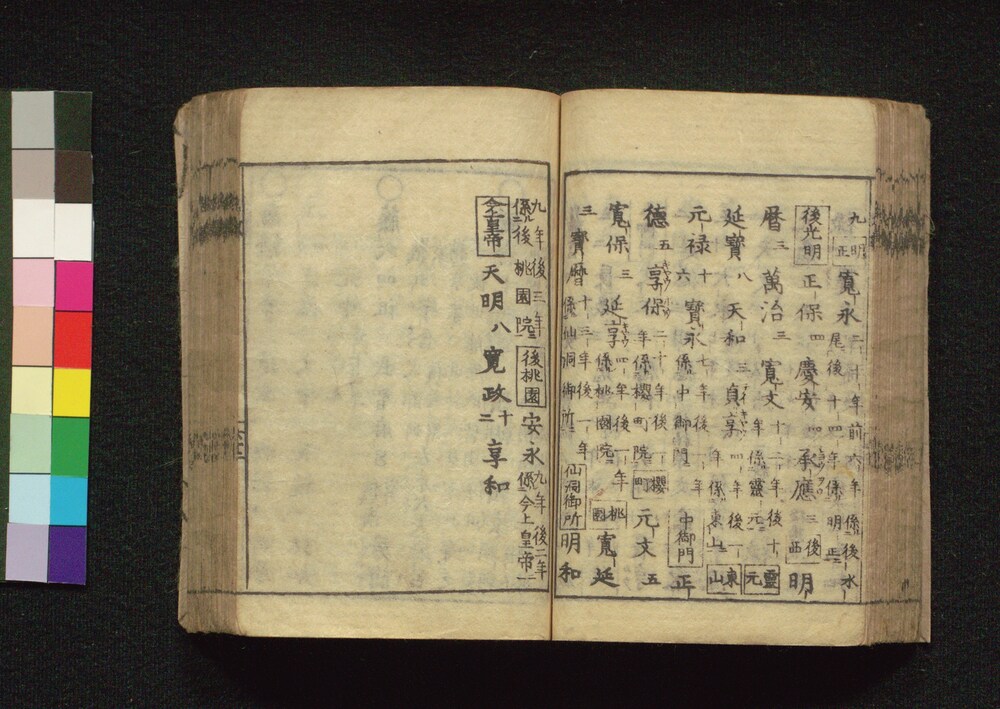 九 明正 寛永 二十年前六年係後水
尾後十四年係明正
後光明 正保 四 慶安 四 承應 三 後西 明
暦 三 萬治 三 寛文 十二年後十
年係靈元 靈元
延寶 八 天和 三 貞享 四年後一
年係東山 東山
元禄 十六 寶永 七年後一年
係中御門 中御門 正
德 五 享保 二十年後一
年係櫻町院 櫻町 元文 五
寛保 三 延享 四年後一年
係桃園院 桃園 寛延
三 寶暦 十三年後一年
係仙洞御所 仙洞御所 明和
九年後三年
係後桃園院 後桃園 安永 九年後二年
係今上皇帝
今上皇帝 天明 八 寛政 十二 享和